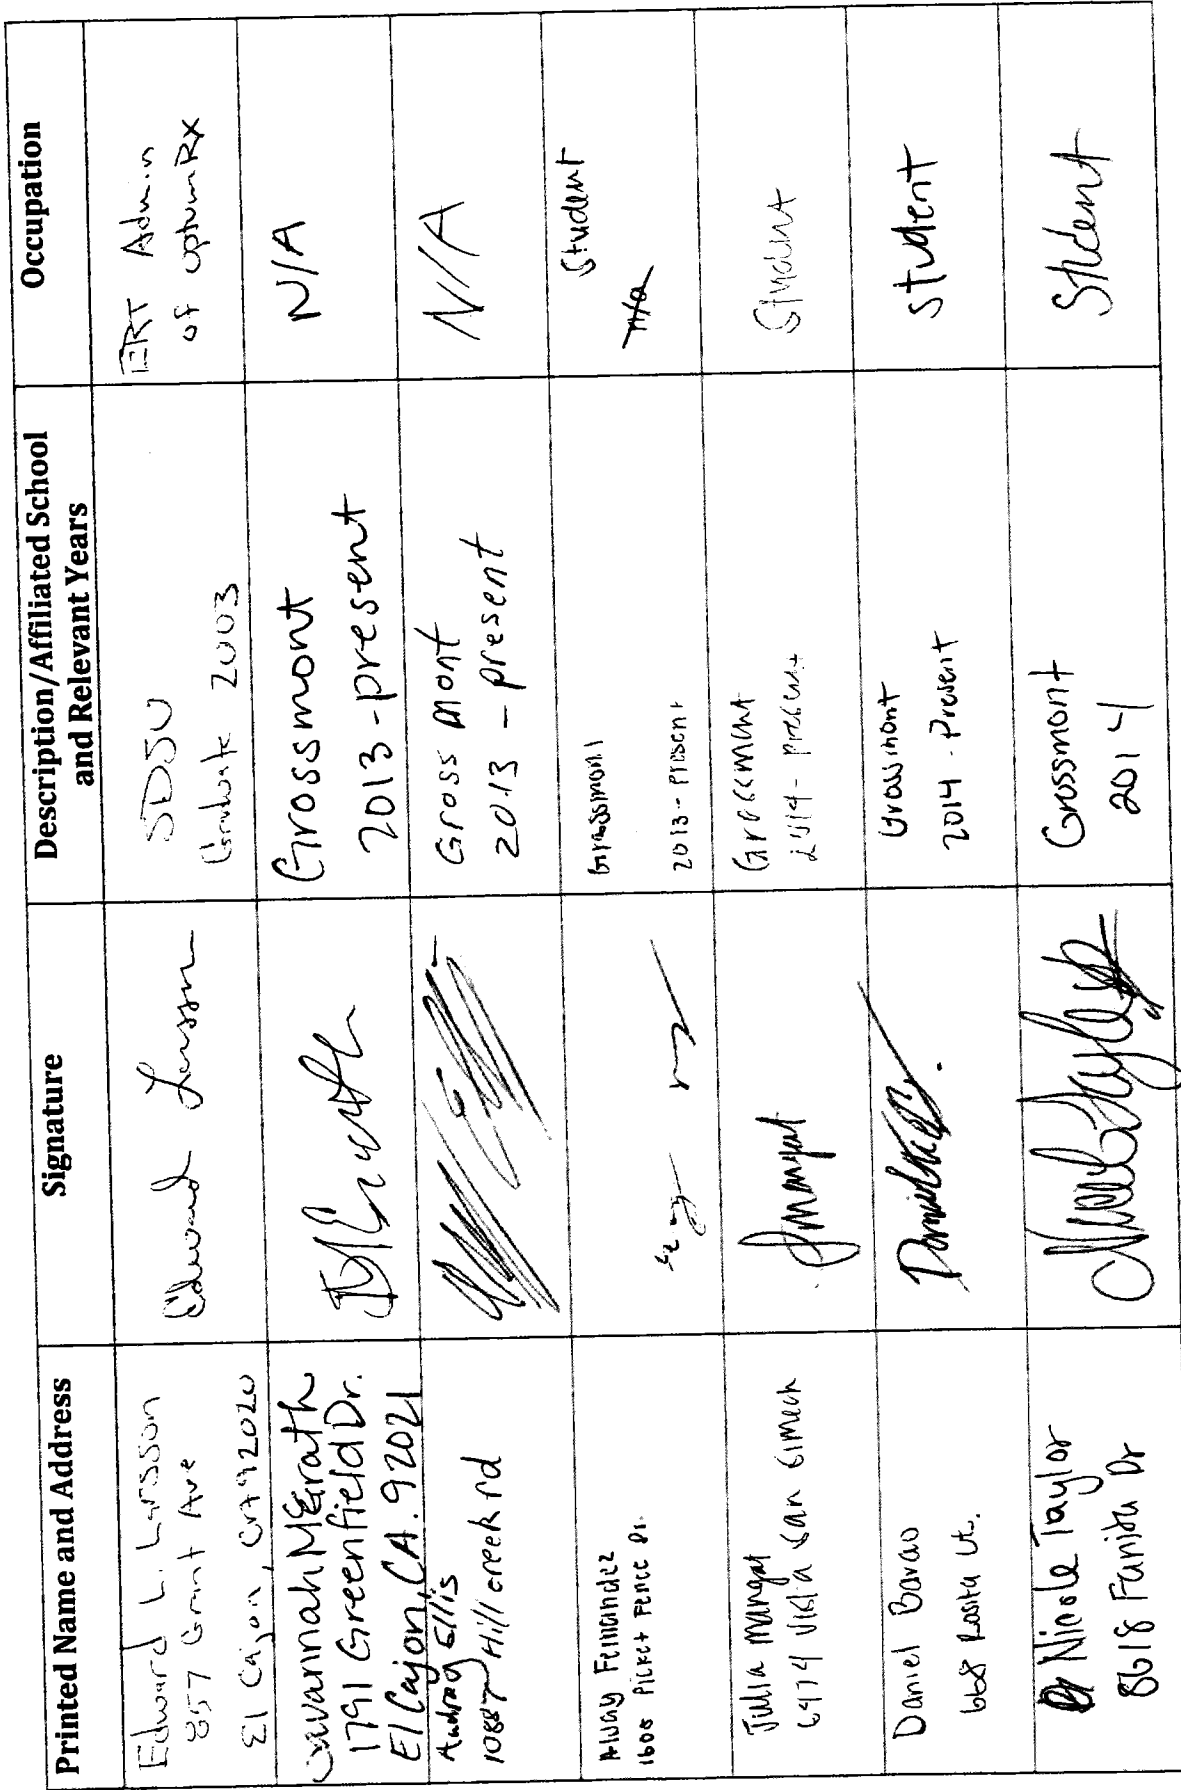 Printed Name and Address
Signature
Description/Affiliated School
and Relevant Years
Occupation
Edward L. Larsson
857 Grant Ave
El Cajon, CA 92020
Edward Larsson
SDSU
Graduate 2003
ERT Admin
of optumRx
Savannah McGrath
1791 Greenfield Dr.
El Cajon, CA. 92021
Grossmont
2013 - present
N/A
Audrey Ellis
10887 Hillcreek rd
Gross Mont
2013 - present
N/A
Fernandez
1608 Picket Fence Dr.
Grossmont
2013 - Present
n/a
Student
Julia Mangat
6974 Vista San
Mangat
Grossmont
2014 - present
Student
Daniel Barao
668 Rosita Ct.
Grossmont
2014 - Present
student
Nicole Taylor
8618 Fanita Dr
Nicole Taylor
Grossmont
2014
Student